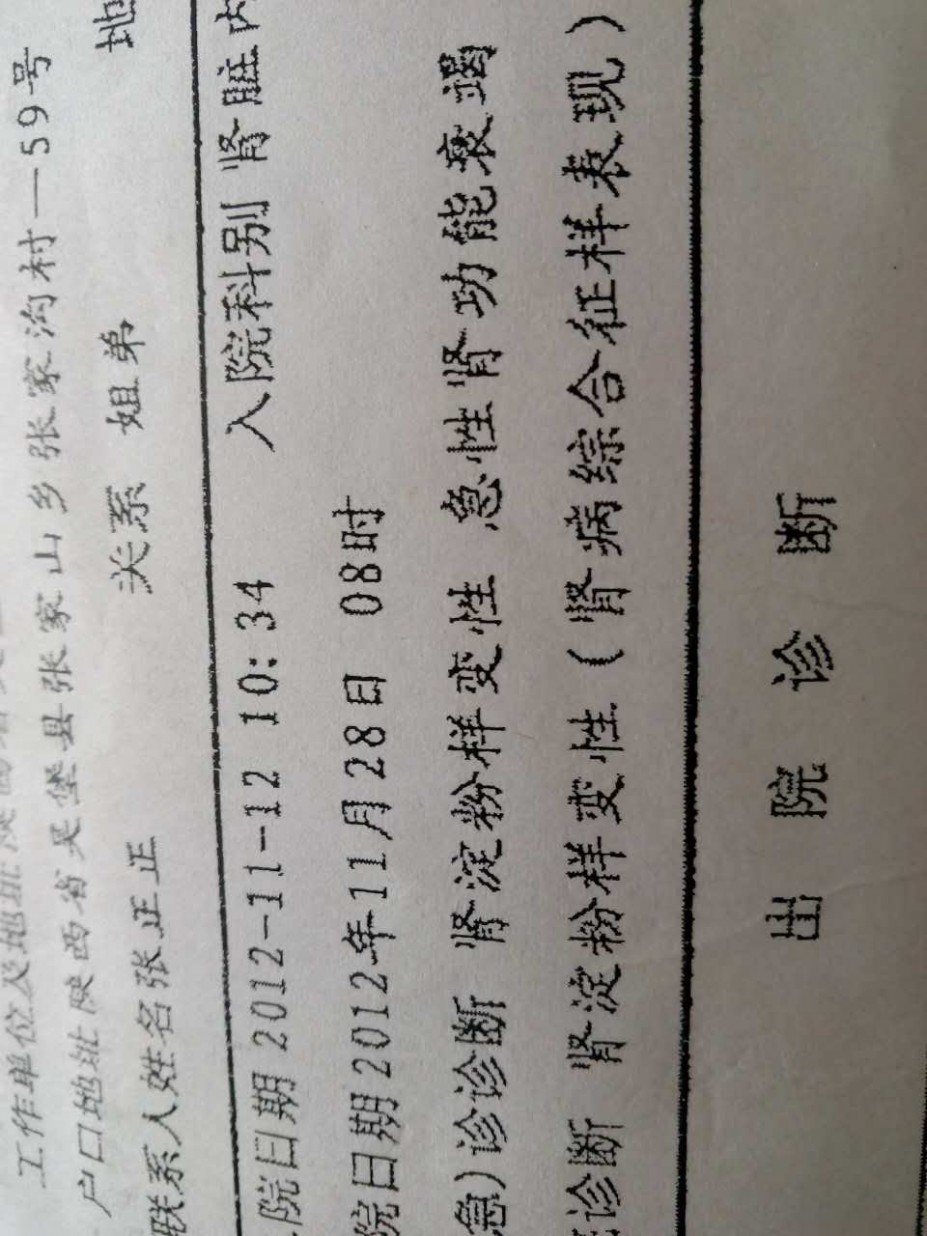 工作单位及地址陕西省
户口地址陕西省吴堡县张家山乡张家沟村—59号
联系人姓名张正正 关系 姐弟 地
院日期 2012-11-12 10:34 入院科别 肾脏内
院日期2012年11月28日 08时
急)诊诊断 肾淀粉样变性 急性肾功能衰竭
诊断 肾淀粉样变性(肾病综合征样表现)
出院诊断